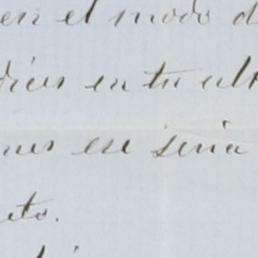 en el modo d
dices en tu ult
nes ese seria
eto.